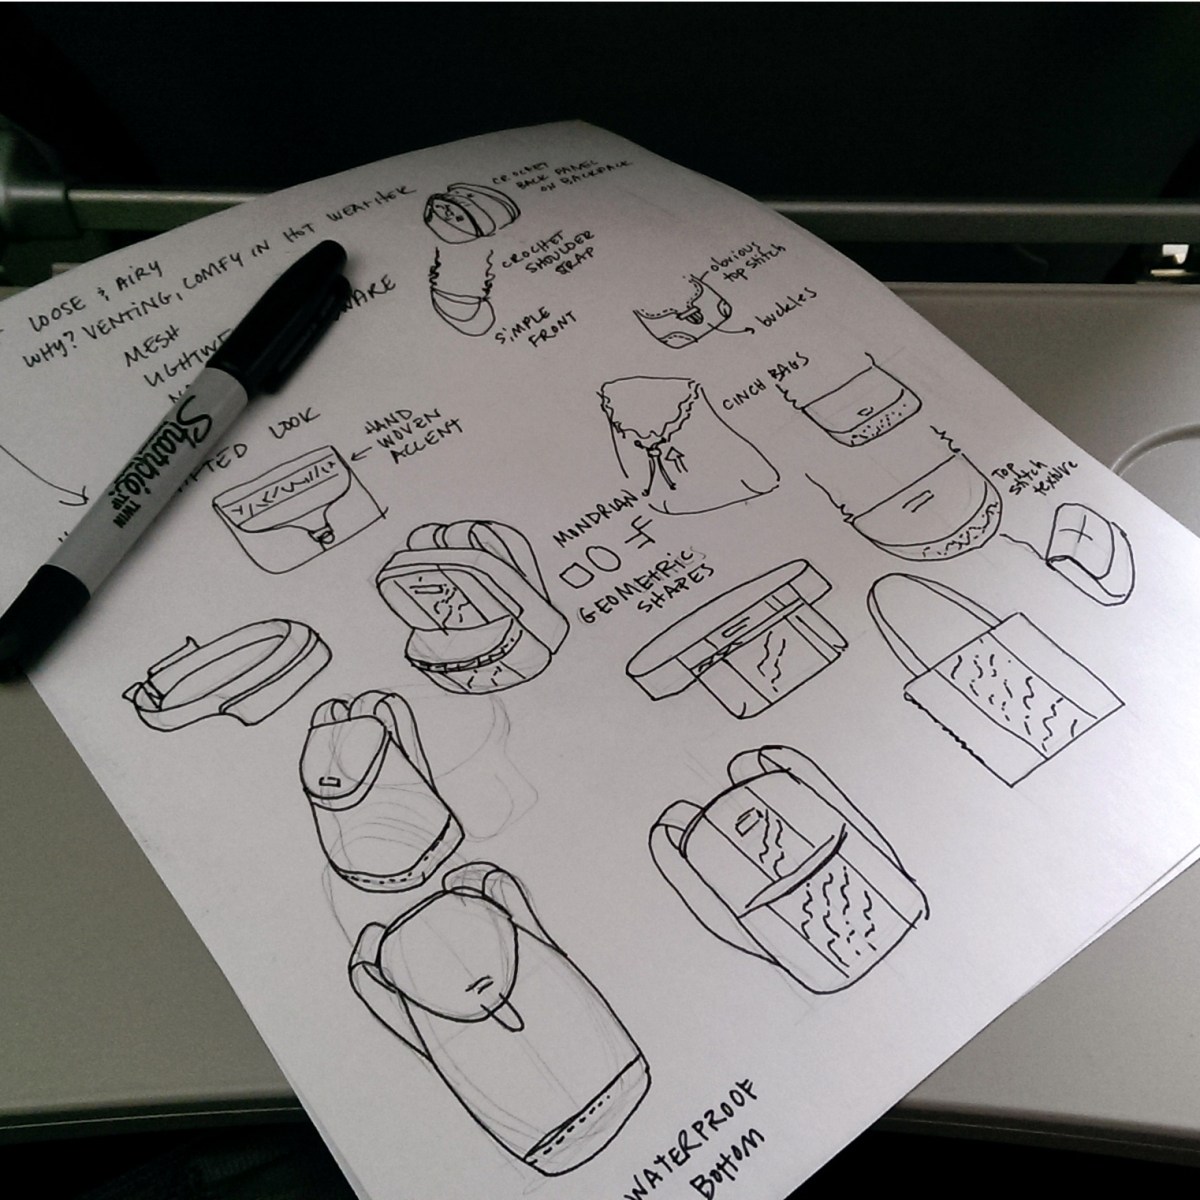 LOOSE & AIRY
WHY? VENTING, COMFY IN HOT WEATHER
MESH
LOOK
HAND
WOVEN
ACCENT
CROCHET
BACK PANEL
ON BACKPACK
CROCHET
SHOULDER
STRAP
SIMPLE
FRONT
obvious
top stitch
buckles
CINCH BAGS
TOP
STITCH
texture
MONDRIAN
GEOMETRIC
SHAPES
WATERPROOF
Bottom
Sharpie
TWIN
TIP